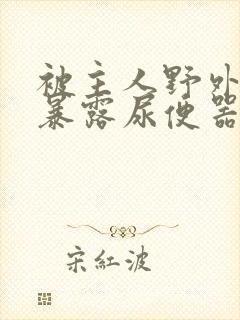 被主人野外
暴露尿便器
宋紅波